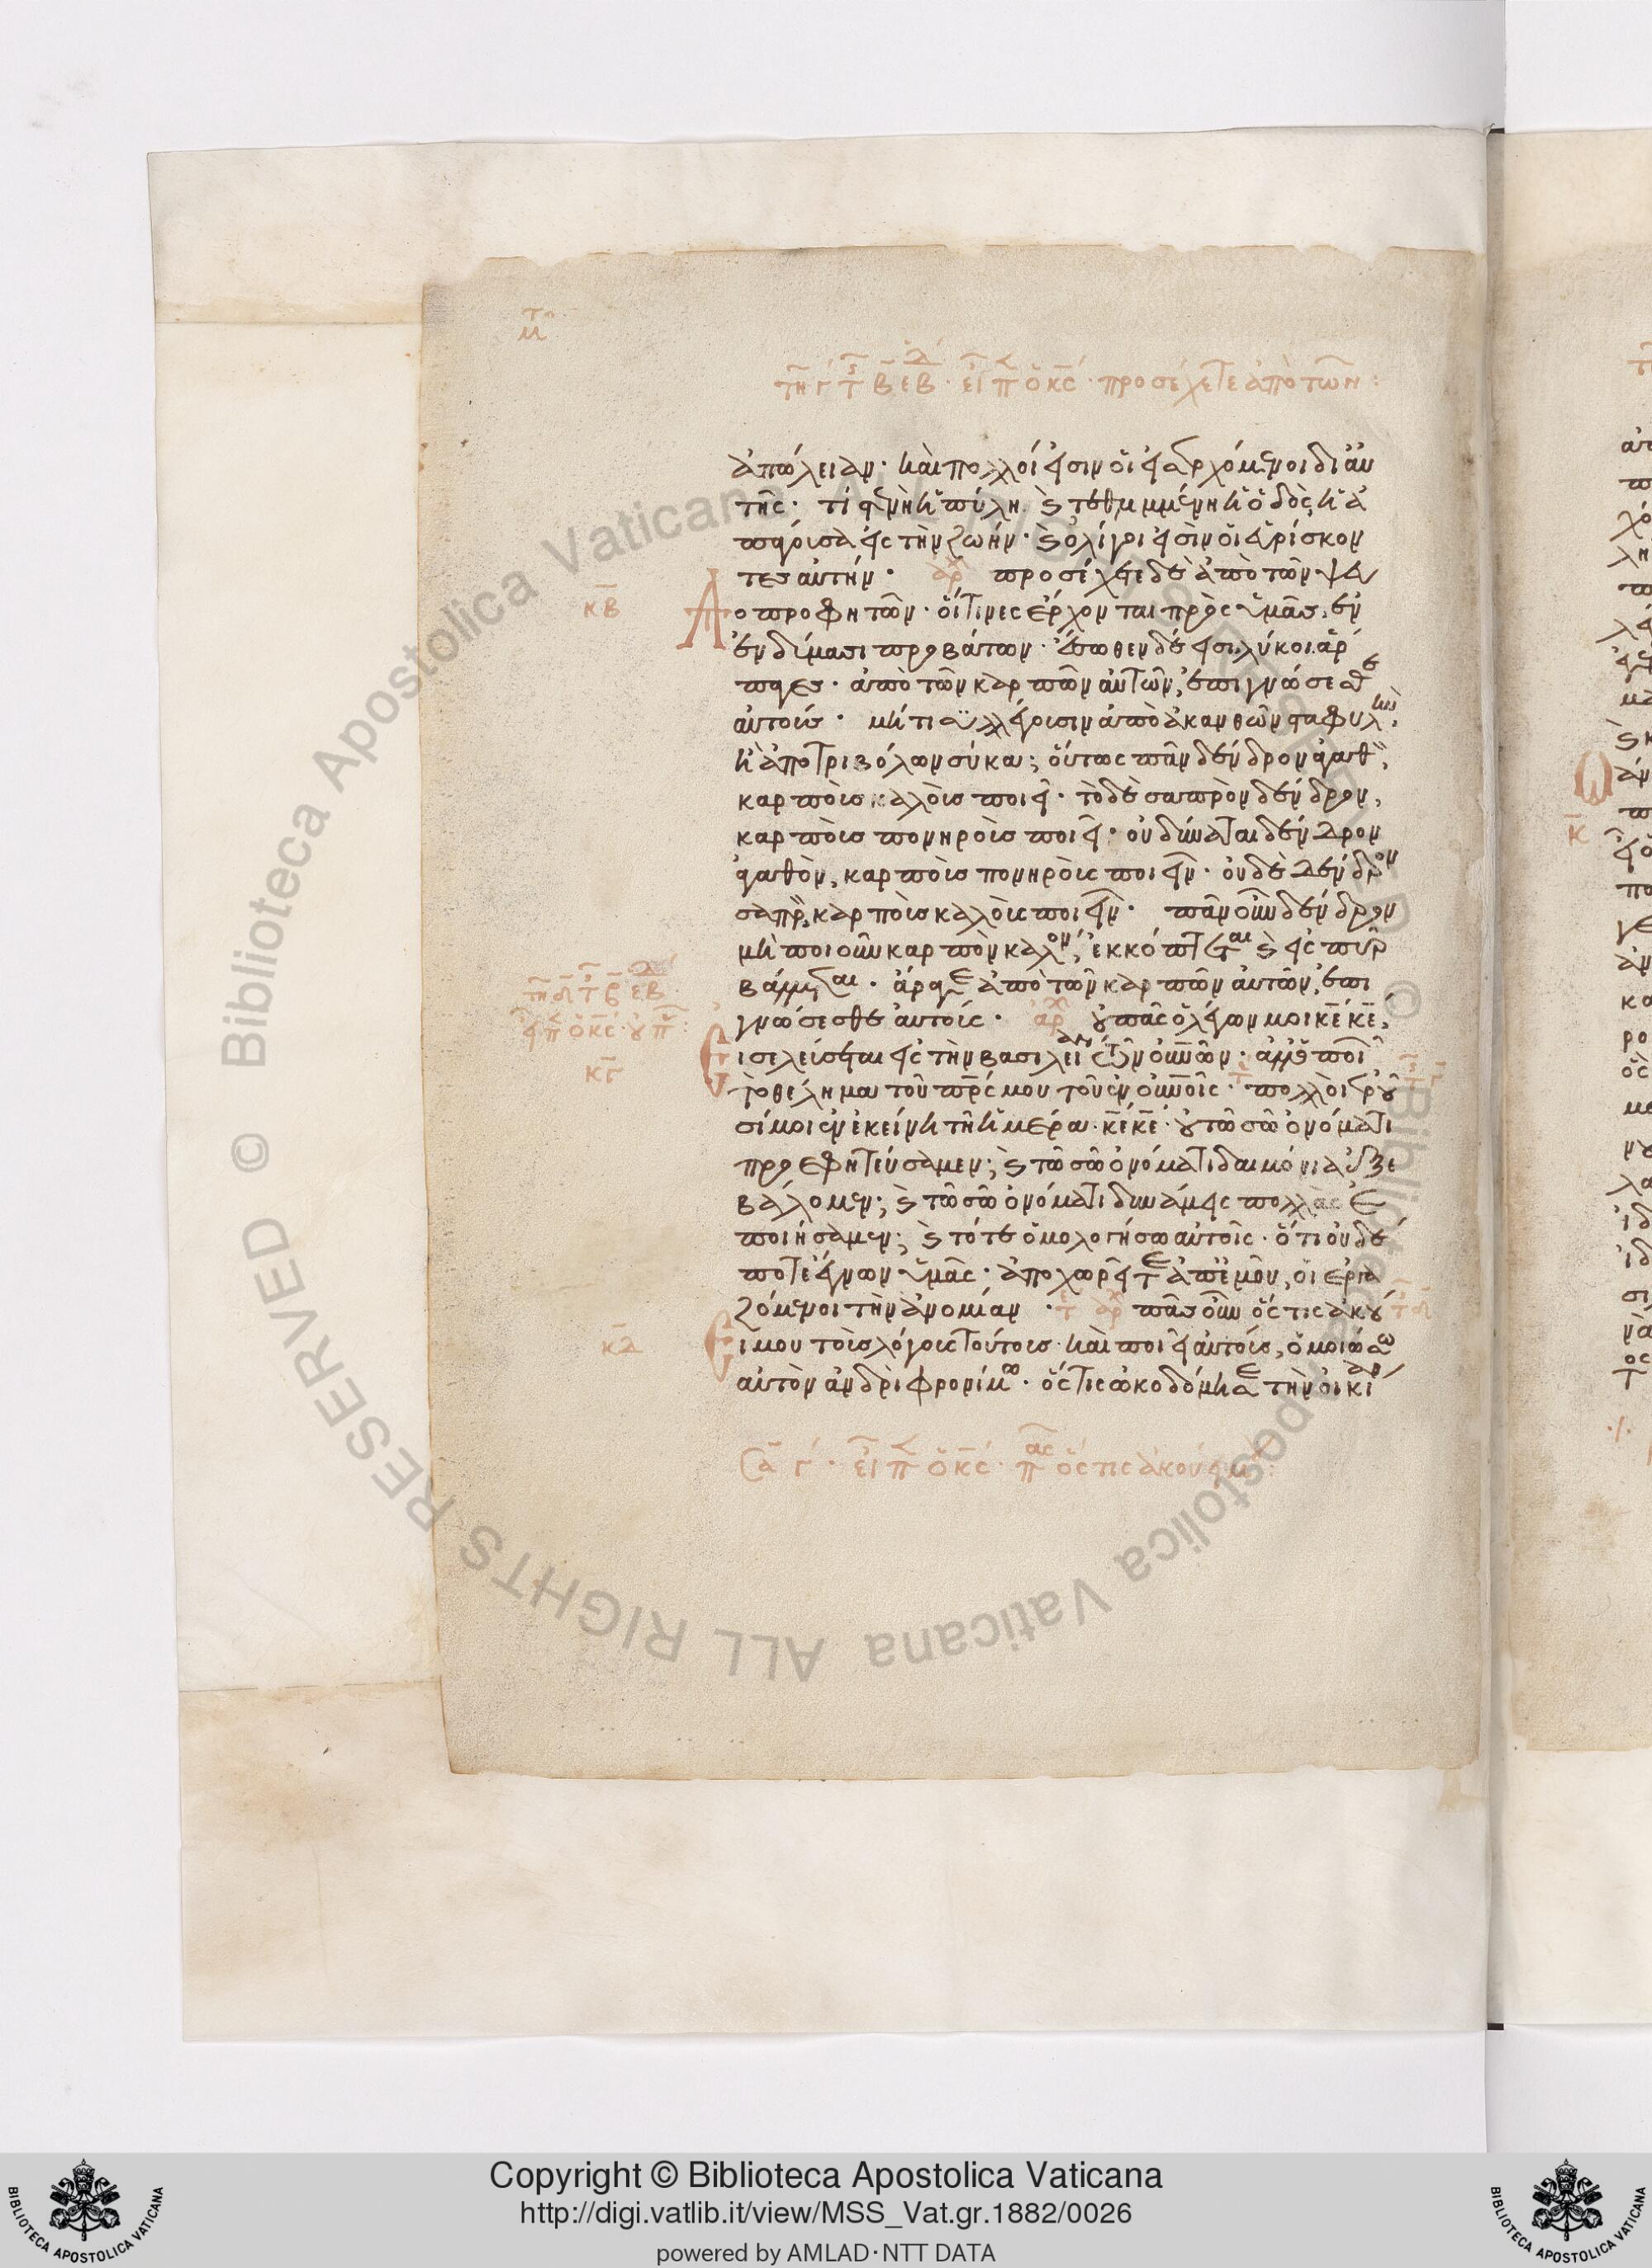 τῆ γ τ β ε β · εἶπ ὁ κς · προσέχετε ἀπὸ τῶν :
ἀπώλειαν · καὶ πολλοί εἰσιν οἱ εἰσερχόμενοι δι αὐ
τῆς · τί στενὴ ἡ πύλη. καὶ τεθλιμμένη ἡ ὁδὸς, ἡ ἀ
πάγουσα εἰς τὴν ζωήν · καὶ ὀλίγοι εἰσὶν οἱ εὑρίσκον
τες αὐτήν · ἀρχ προσέχετε δὲ ἀπὸ τῶν ψευ
κβ
δοπροφητῶν · οἵτινες ἔρχονται πρὸς ὑμᾶς, ἐν
ἐνδύμασι προβάτων · ἔσωθεν δέ εἰσι λύκοι ἅρ
παγες · ἀπὸ τῶν καρπῶν αὐτῶν, ἐπιγνώσεσθε
αὐτούς · μήτι συλλέγουσιν ἀπὸ ἀκανθῶν σταφυλὴν,
ἢ ἀπὸ τριβόλων σύκα; οὕτως πᾶν δένδρον ἀγαθὸν,
καρποὺς καλοὺς ποιεῖ · τὸ δὲ σαπρὸν δένδρον,
καρποὺς πονηροὺς ποιεῖ · οὐ δύναται δένδρον
ἀγαθὸν, καρποὺς πονηροὺς ποιεῖν · οὐδὲ δένδρον
σαπρὸν, καρποὺς καλοὺς ποιεῖν · πᾶν οὖν δένδρον
μὴ ποιοῦν καρπὸν καλὸν, ἐκκόπτεται καὶ εἰς πῦρ
βάλλεται · ἄραγε ἀπὸ τῶν καρπῶν αὐτῶν, ἐπι
γνώσεσθε αὐτούς · ἀρχ οὐ πᾶς ὁ λέγων μοι κε κε,
κγ
εἰσελεύσεται εἰς τὴν βασιλείαν τῶν οὐνῶν · ἀλλ ὁ ποιῶν
τὸ θέλημα τοῦ πρς μου τοῦ ἐν οὐνοῖς · πολλοὶ ἐροῦ
σί μοι ἐν ἐκείνη τῆ ἡμέρα · κε κε · οὐ τῶ σῶ ὀνόματι
προεφητεύσαμεν; καὶ τῶ σῶ ὀνόματι δαιμόνια ἐξε
βάλομεν; καὶ τῶ σῶ ὀνόματι δυνάμεις πολλὰς ἐ
ποιήσαμεν; καὶ τότε ὁμολογήσω αὐτοῖς · ὅτι οὐδέ
ποτε ἔγνων ὑμᾶς · ἀποχωρεῖτε ἀπ ἐμοῦ, οἱ ἐργα
ζόμενοι τὴν ἀνομίαν · τ ἀρχ πᾶς οὖν ὅστις ἀκού
κδ
ει μου τοὺς λόγους τούτους · καὶ ποιεῖ αὐτούς, ὁμοιώσω
αὐτὸν ἀνδρὶ φρονίμω · ὅστις ὠκοδόμησε τὴν οἰκίαν
Σα γ · εἶπ ὁ κς · πᾶς ὅστις ἀκούει μου :
Copyright © Biblioteca Apostolica Vaticana
http://digi.vatlib.it/view/MSS_Vat.gr.1882/0026
powered by AMLAD·NTT DATA